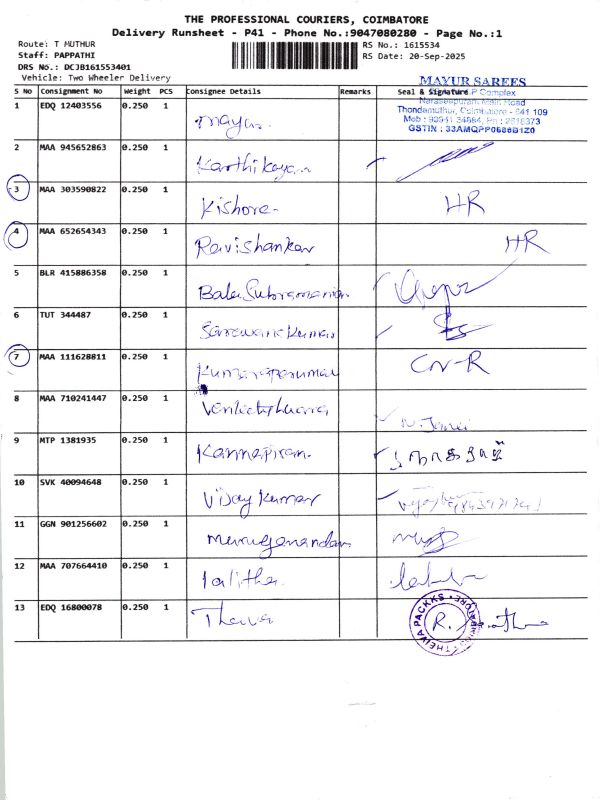 THE PROFESSIONAL COURIERS, COIMBATORE
Delivery Runsheet - P41 - Phone No.:9047080280 - Page No.:1
Route: T MUTHUR RS No.: 1615534
Staff: PAPPATHI RS Date: 20-Sep-2025
DRS No.: DCJB161553401
Vehicle: Two Wheeler Delivery
MAYUR SAREES
S No Consignment No Weight PCS Consignee Details Remarks Seal & Signature
P Complex
Naraseepuram Main Road
Thondamuthur, Coimbatore - 641 109
GSTIN : 33AMQPP0686B1Z0
1 EDQ 12403556 0.250 1 mayur
2 MAA 945652863 0.250 1 Karthikeyan
3 MAA 303590822 0.250 1 Kishore HR
4 MAA 652654343 0.250 1 Ravishankar HR
5 BLR 415886358 0.250 1 Bala Subramanian
6 TUT 344487 0.250 1 Saravana Kumar
7 MAA 111628811 0.250 1 Kumaraperumal CN-R
8 MAA 710241447 0.250 1
9 MTP 1381935 0.250 1 Kannapiran
10 SVK 40094648 0.250 1 Vijay Kumar
11 GGN 901256602 0.250 1 Muruganandam
12 MAA 707664410 0.250 1 lalitha
13 EDQ 16800078 0.250 1 Theiva
THEIVA PACKKS